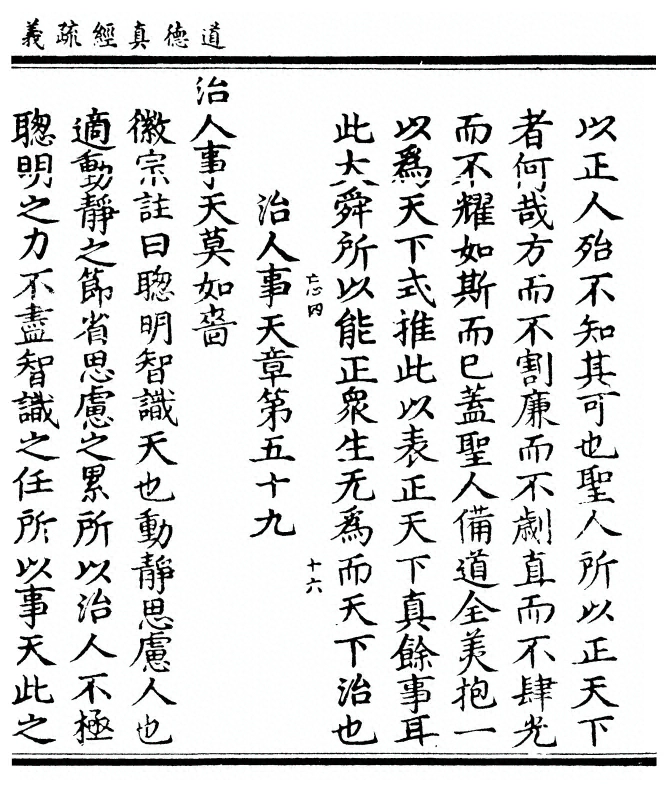 道德真經疏義
以正人殆不知其可也聖人所以正天下
者何哉方而不割廉而不劌直而不肆光
而不耀如斯而已蓋聖人備道全羙抱一
以爲天下式推此以表正天下真餘事耳
此大舜所以能正衆生无爲而天下治也
忘四
十六
治人事天章第五十九
治人事天莫如嗇
徽宗註曰聰明智識天也動靜思慮人也
適動靜之節省思慮之累所以治人不極
聰明之力不盡智識之任所以事天此之